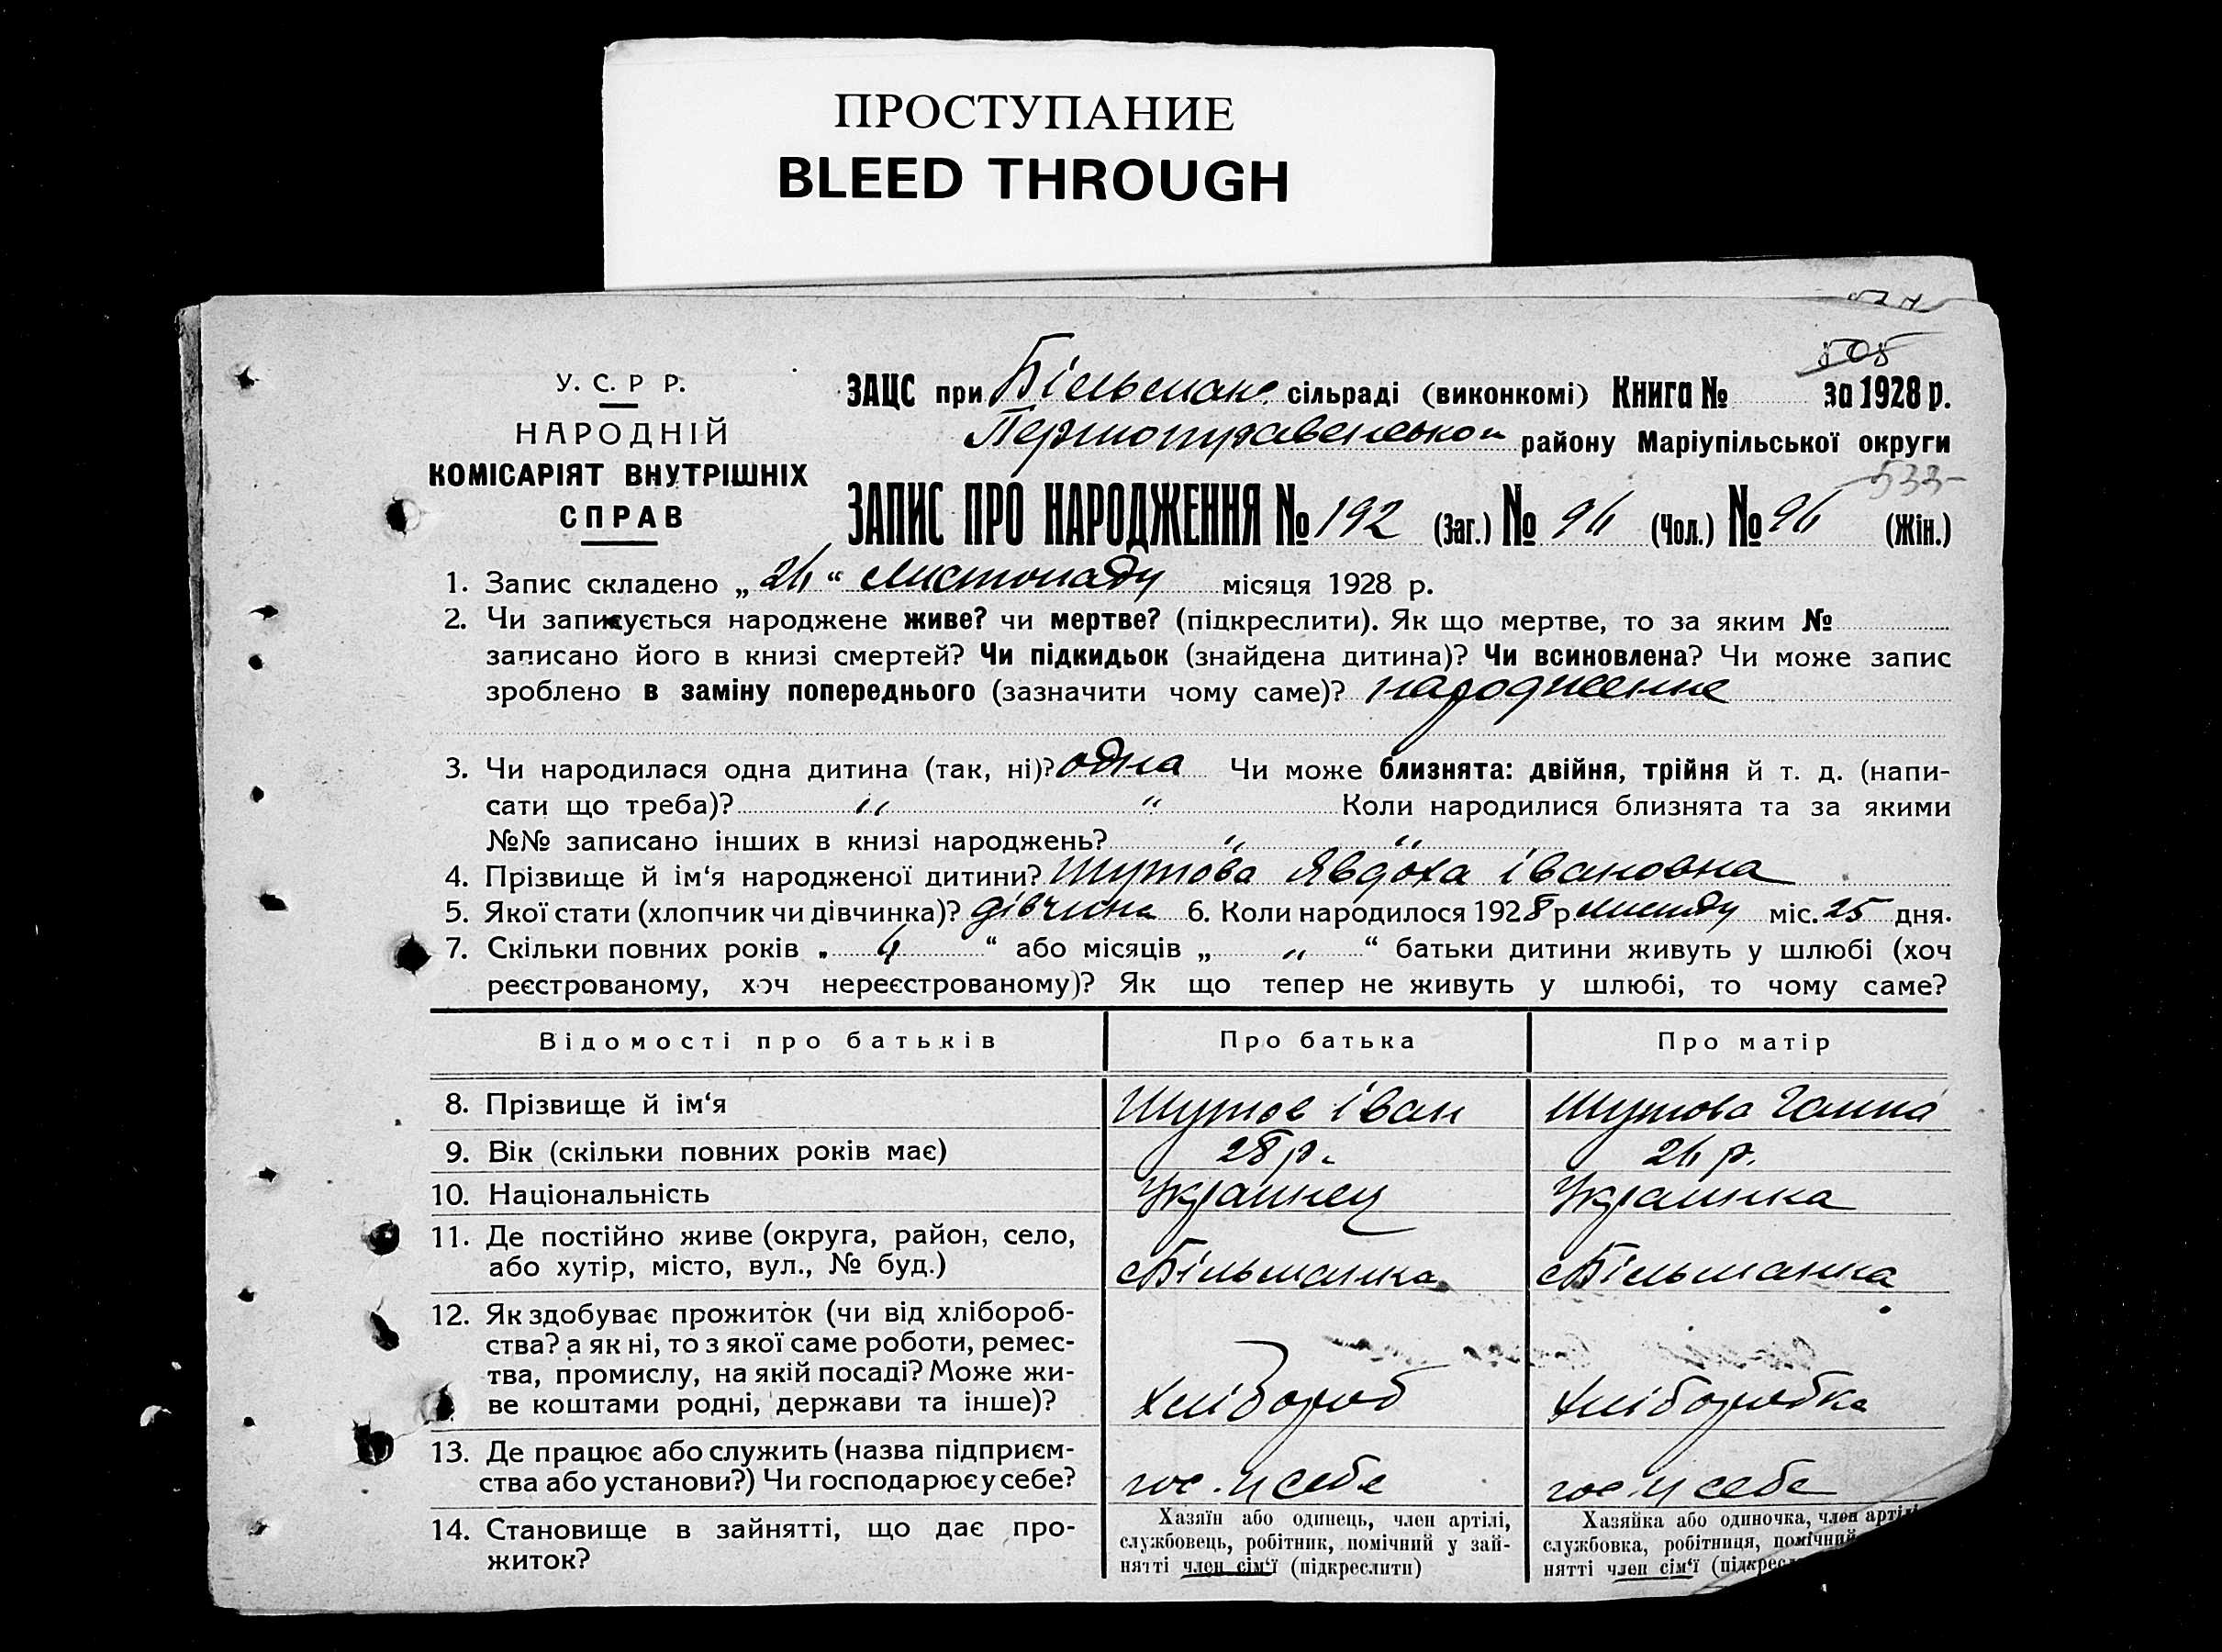 ПРОСТУПАНИЕ
BLEED THROUGH
505
У. С. Р Р.
НАРОДНІЙ
КОМІСАРІЯТ ВНУТРІШНІХ
СПРАВ
ЗАЦС при Більманс. сільраді (виконкомі) Книга № за 1928 р.
району Маріупільської округи
533
ЗАПИС ПРО НАРОДЖЕННЯ № 192 (Заг.) № 96 (Чол.) № 96 (Жін.)
1. Запис складено „ 26 “ Листопаду місяця 1928 р.
2. Чи записується народжене живе? чи мертве? (підкреслити). Як що мертве, то за яким №
записано його в книзі смертей? Чи підкидьок (знайдена дитина)? Чи всиновлена? Чи може запис
зроблено в заміну попереднього (зазначити чому саме)? народження
3. Чи народилася одна дитина (так, ні)? одна Чи може близнята: двійня, трійня й т. д. (напи-
сати що треба)? „ „ Коли народилися близнята та за якими
№№ записано інших в книзі народжень? „ „
4. Прізвище й ім‘я народженої дитини? Шутова Явдоха Івановна
5. Якої стати (хлопчик чи дівчинка)? дівчина 6. Коли народилося 1928 р. міс. 25 дня.
7. Скільки повних років „ 4 “ або місяців „ „ “ батьки дитини живуть у шлюбі (хоч
реєстрованому, хоч нереєстрованому)? Як що тепер не живуть у шлюбі, то чому саме?
Відомості про батьків Про батька Про матір
8. Прізвище й ім‘я Шутов Іван Шутова Ганна
9. Вік (скільки повних років має) 28 р. 26 р.
10. Національність Украинец Украинка
11. Де постійно живе (округа, район, село,
або хутір, місто, вул., № буд.) сБільманка сБільманка
12. Як здобуває прожиток (чи від хлібороб-
ства? а як ні, то з якої саме роботи, ремес-
тва, промислу, на якій посаді? Може жи-
ве коштами родні, держави та інше)? Хлібороб Хліборобка
13. Де працює або служить (назва підприєм-
ства або установи?) Чи господарює у себе? гос. у себе гос. у себе
14. Становище в зайнятті, що дає про-
житок?
Хазяїн або одинець, член артілі,
службовець, робітник, помічний у зай-
нятті член сім‘ї (підкреслити)
Хазяйка або одиночка, член артілі
службовка, робітниця, помічний
нятті член сім‘ї (підкрес